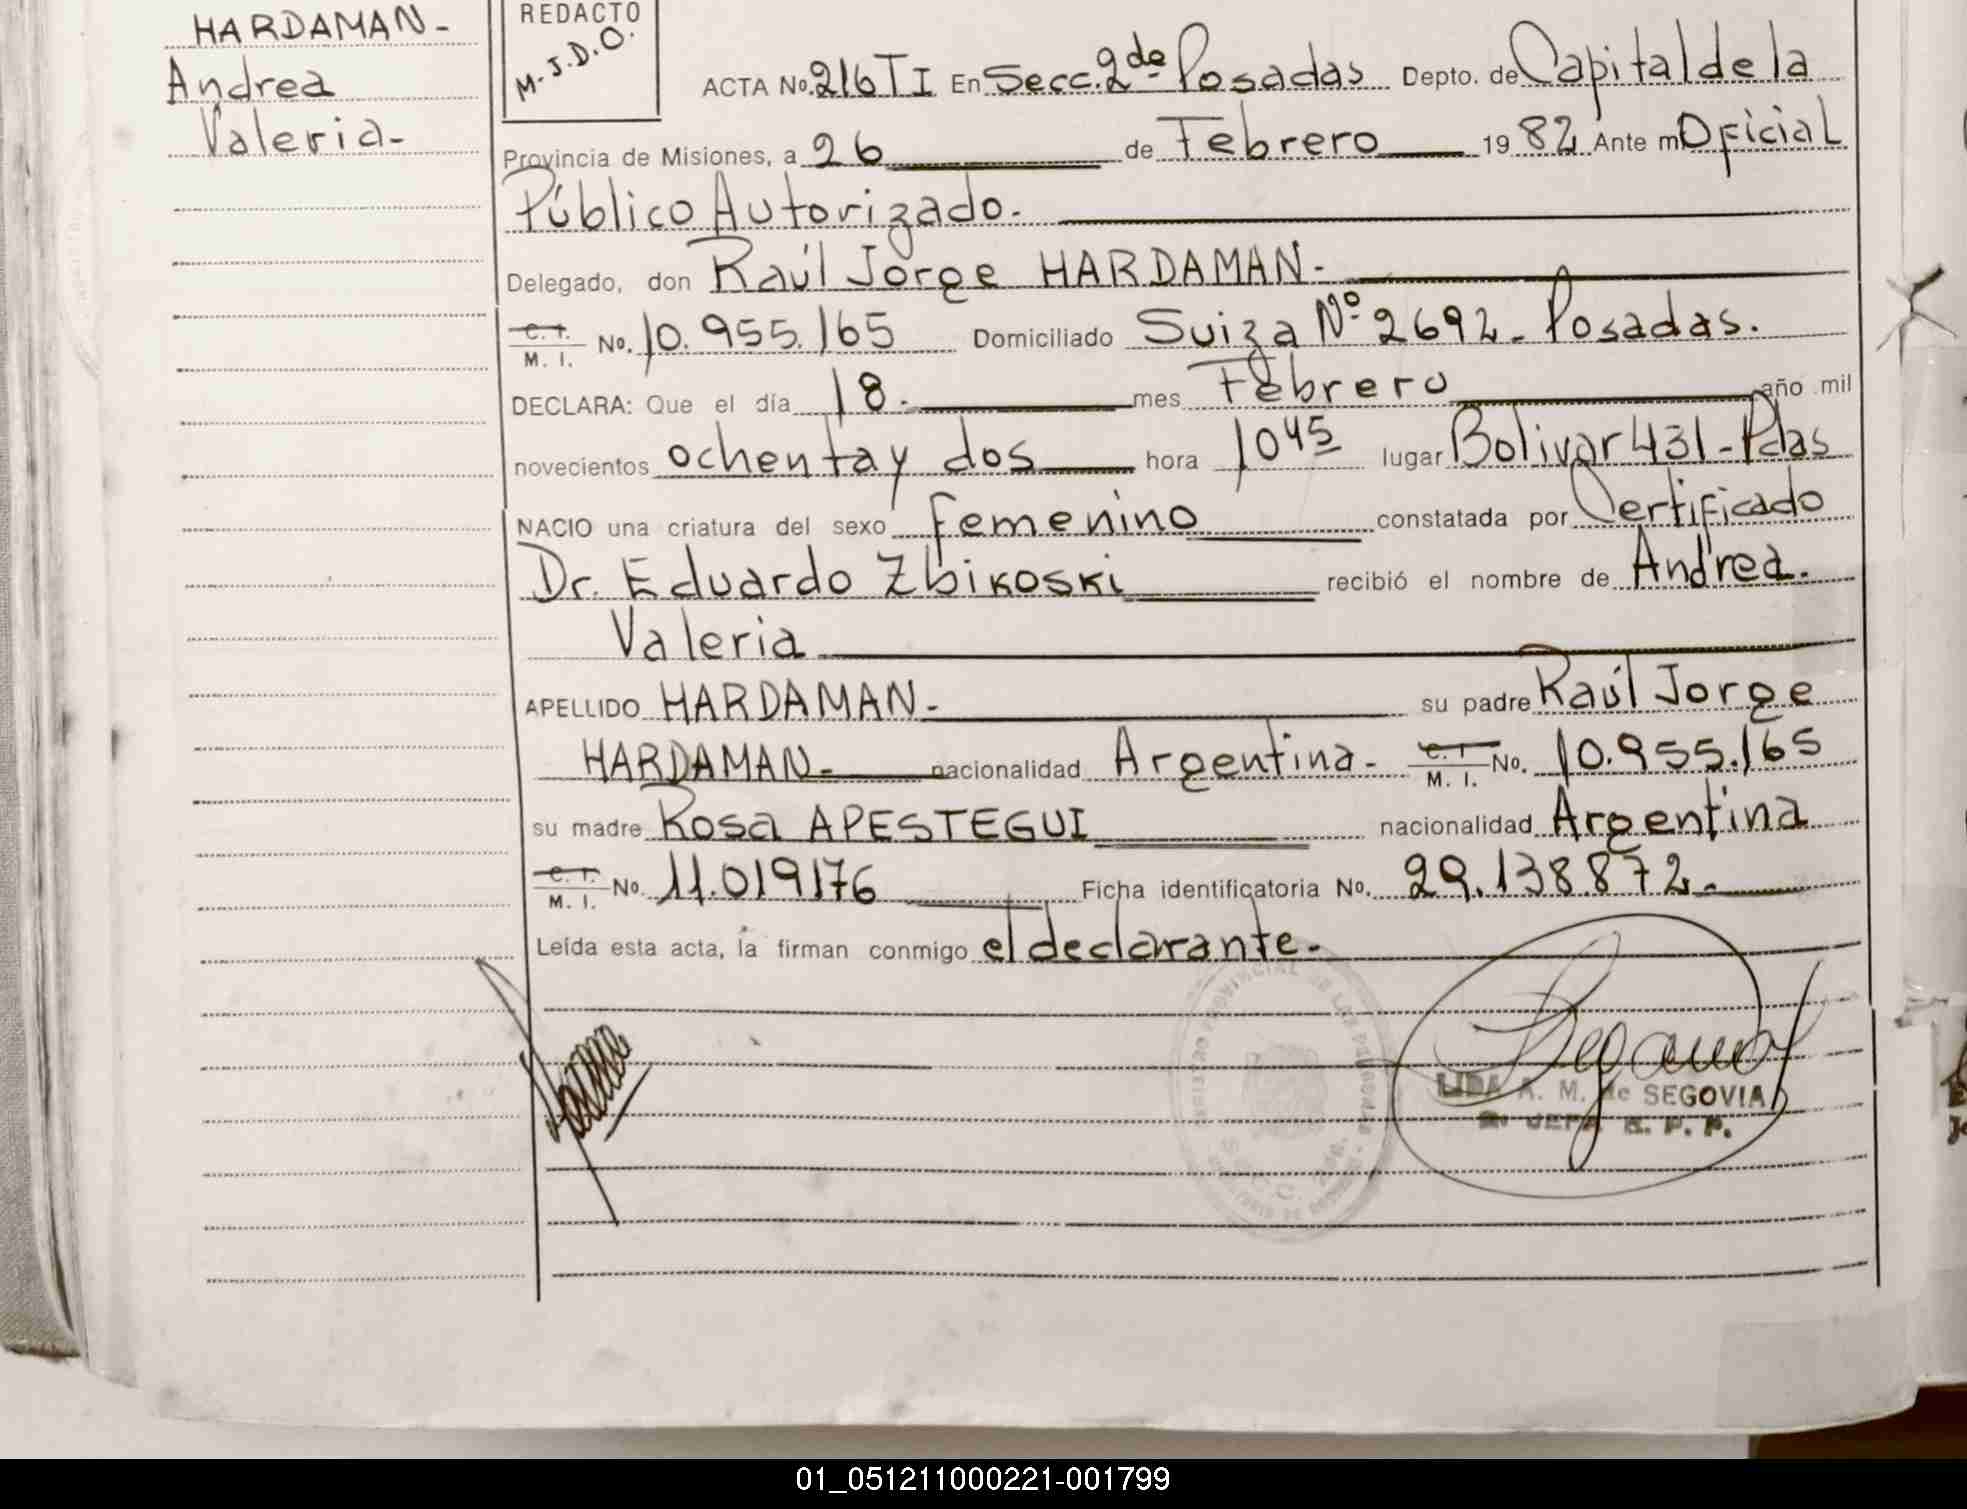 HARDAMAN-
Andrea
Valeria-
REDACTO
M.J.D.O.
ACTA No. 216 T I En Secc. 2da Posadas Depto. de Capital de la
Provincia de Misiones, a 26 de Febrero 1982 Ante mí Oficial
Público Autorizado.
Delegado, don Raúl Jorge HARDAMAN-
C. I. M. I. No. 10.955.165 Domiciliado Suiza Nº 2692- Posadas.
DECLARA: Que el día 18. mes Febrero año mil
novecientos ochenta y dos hora 10 45 lugar Bolivar 431-Pdas
NACIO una criatura del sexo femenino constatada por Certificado
Dr. Eduardo Zbikoski recibió el nombre de Andrea.
Valeria
APELLIDO HARDAMAN- su padre Raúl Jorge
HARDAMAN- nacionalidad Argentina- C. I. M. I. No. 10.955.165
su madre Rosa APESTEGUI nacionalidad Argentina
C. I. M. I. No. 11.019176 Ficha identificatoria No. 29.138872-
Leída esta acta, la firman conmigo el declarante-
LIDA A. M. de SEGOVIA
JEFA R. P. P.
01_051211000221-001799